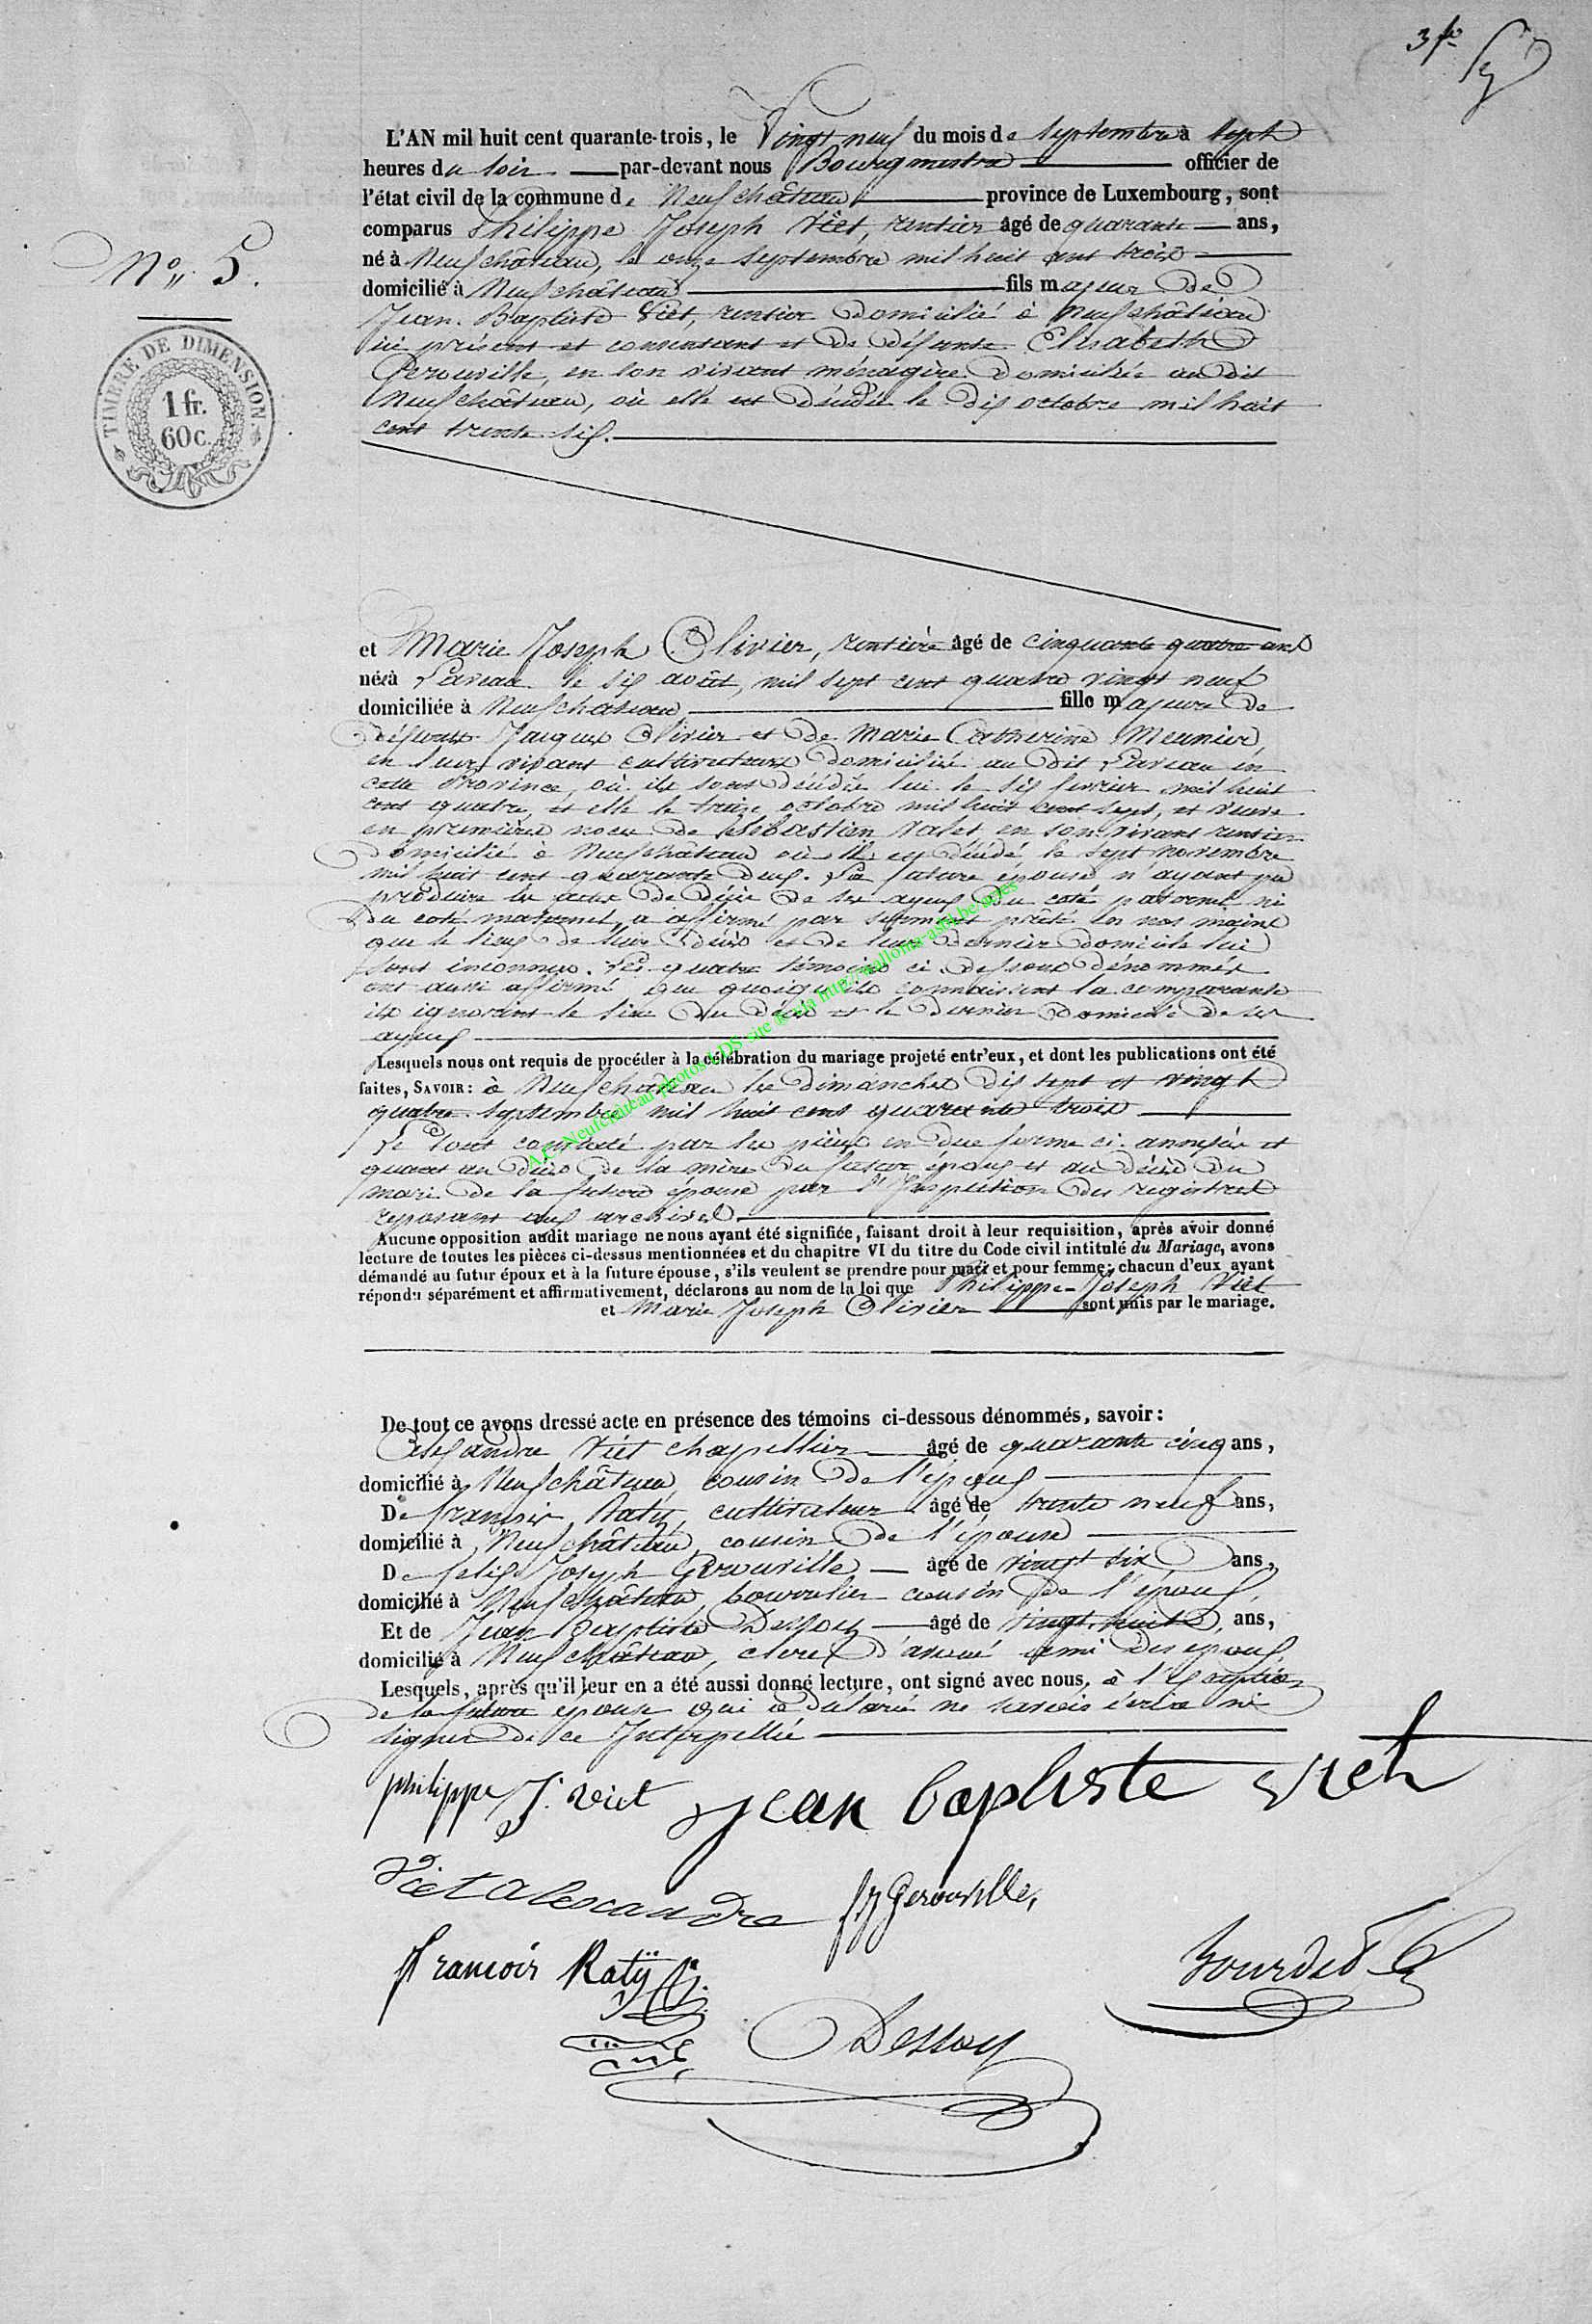 3 fo
L'AN mil huit cent quarante-trois, le Vingt neuf du mois de septembre à sept
heures du soir par-devant nous Bourgmestre officier de
l'état civil de la commune de Neufchâteau province de Luxembourg, sont
comparus Philippe Joseph Viet, rentier âgé de quarante ans,
né à Neufchâteau, le onze septembre mil huit cent trois
No 5.
domicilié à Neufchâteau fils majeur de
Jean-Baptiste Viet, rentier domicilié à Neufchâteau
ici présent et consentant et de défunte Elisabeth
Gerouville, en son vivant ménagère domiciliée au dit
Neufchâteau, où elle est décédée le dix octobre mil huit
cent trente six.
TIMBRE DE DIMENSION.
1 fr.
60 c.
et Marie Joseph Olivier, rentière âgé de cinquante quatre ans
née à le six août, mil sept cent quatre vingt neuf
domiciliée à Neufchâteau fille majeure de
défunts Jacques Olivier et de Marie Catherine Meunier,
en leur vivant cultivateurs domiciliés au dit en
cette Province, où ils sont décédés lui le six février mil huit
cent quatre, et elle le treize octobre mil huit cent sept, et veuve
en premières noces de Sébastien Valet, en son vivant rentier
domicilié à Neufchâteau où il est décédé le sept novembre
mil huit cent quarante deux. La future épouse n'ayant pu
produire les actes de décès de ses ayeux du coté paternel ni
du coté maternel, a affirmé par serment prêté en nos mains
que le lieux de leurs décès et de leur dernier domicile lui
sont inconnus. Les quatre témoins ci-dessous dénommés
ont aussi affirmé que quoiqu'ils connaissent la comparante
ils ignorent le lieu du décès et le dernier domicile de ses
ayeux
Lesquels nous ont requis de procéder à la célébration du mariage projeté entr'eux, et dont les publications ont été
faites, SAVOIR: à Neufchâteau les dimanches dix sept et vingt
quatre septembre mil huit cent quarante trois
Le tout constaté par les pièces en due forme ci-annexées et
quant au décès de la mère du futur époux et au décès du
mari de la future épouse par l'Inspection des registres
reposant aux archives.
Aucune opposition audit mariage ne nous ayant été signifiée, faisant droit à leur requisition, après avoir donné
lecture de toutes les pièces ci-dessus mentionnées et du chapitre VI du titre du Code civil intitulé du Mariage, avons
démandé au futur époux et à la future épouse, s'ils veulent se prendre pour mari et pour femme; chacun d'eux ayant
répondu séparément et affirmativement, déclarons au nom de la loi que Philippe-Joseph Viet
et Marie Joseph Olivier sont unis par le mariage.
De tout ce avons dressé acte en présence des témoins ci-dessous dénommés, savoir:
Alexandre Viet chapellier âgé de quarante cinq ans,
domicilié à Neufchâteau, cousin de l'époux
De François Raty, cultivateur âgé de trente neuf ans,
domicilié à Neufchâteau, cousin de l'épouse
De Felix Joseph Gerouville âgé de vingt six ans,
domicilié à Neufchâteau, bourrelier cousin de l'époux,
Et de Jean Baptiste Dessoy âgé de vingt huit ans,
domicilié à Neufchâteau, clerc d'avoué ami des époux
Lesquels, après qu'il leur en a été aussi donné lecture, ont signé avec nous, à l'exception
de la future épouse qui a déclaré ne savoir écrire ni
signer de ce Interpellée
philippe J. viet jean baptiste viet
Viet alescandre fJ Gerouville,
francois Raty
Bourdet
Dessoy